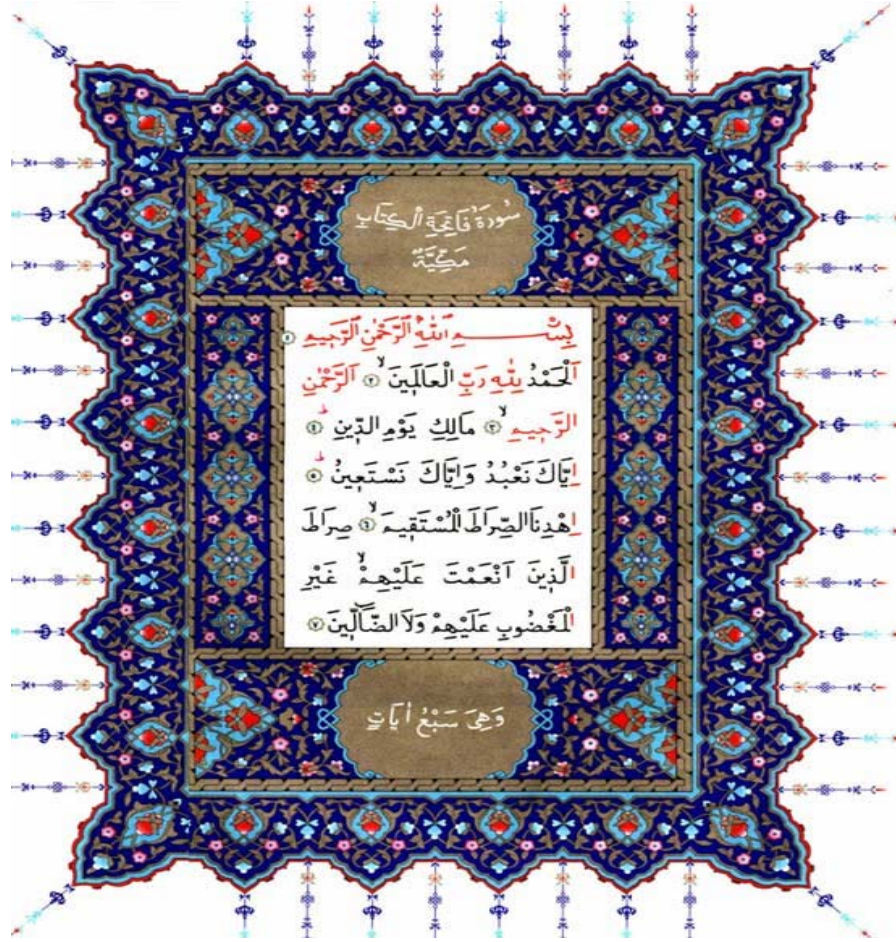 سُورَةُ فَاتِحَةِ الْكِتَابِ
مَكِّيَّةٌ
بِسْمِ اللّٰهِ الرَّحْمٰنِ الرَّحِيمِ ﴿١﴾
اَلْحَمْدُ لِلّٰهِ رَبِّ الْعَالَمِينَۙ ﴿٢﴾ اَلرَّحْمٰنِ
الرَّحِيمِۙ ﴿٣﴾ مَالِكِ يَوْمِ الدِّينِۜ ﴿٤﴾
اِيَّاكَ نَعْبُدُ وَاِيَّاكَ نَسْتَعِينُۜ ﴿٥﴾
اِهْدِنَا الصِّرَاطَ الْمُسْتَقِيمَۙ ﴿٦﴾ صِرَاطَ
الَّذِينَ اَنْعَمْتَ عَلَيْهِمْۙ غَيْرِ
الْمَغْضُوبِ عَلَيْهِمْ وَلَا الضَّٓالِّينَ ﴿٧﴾
وَهِيَ سَبْعُ اٰيَاتٍ